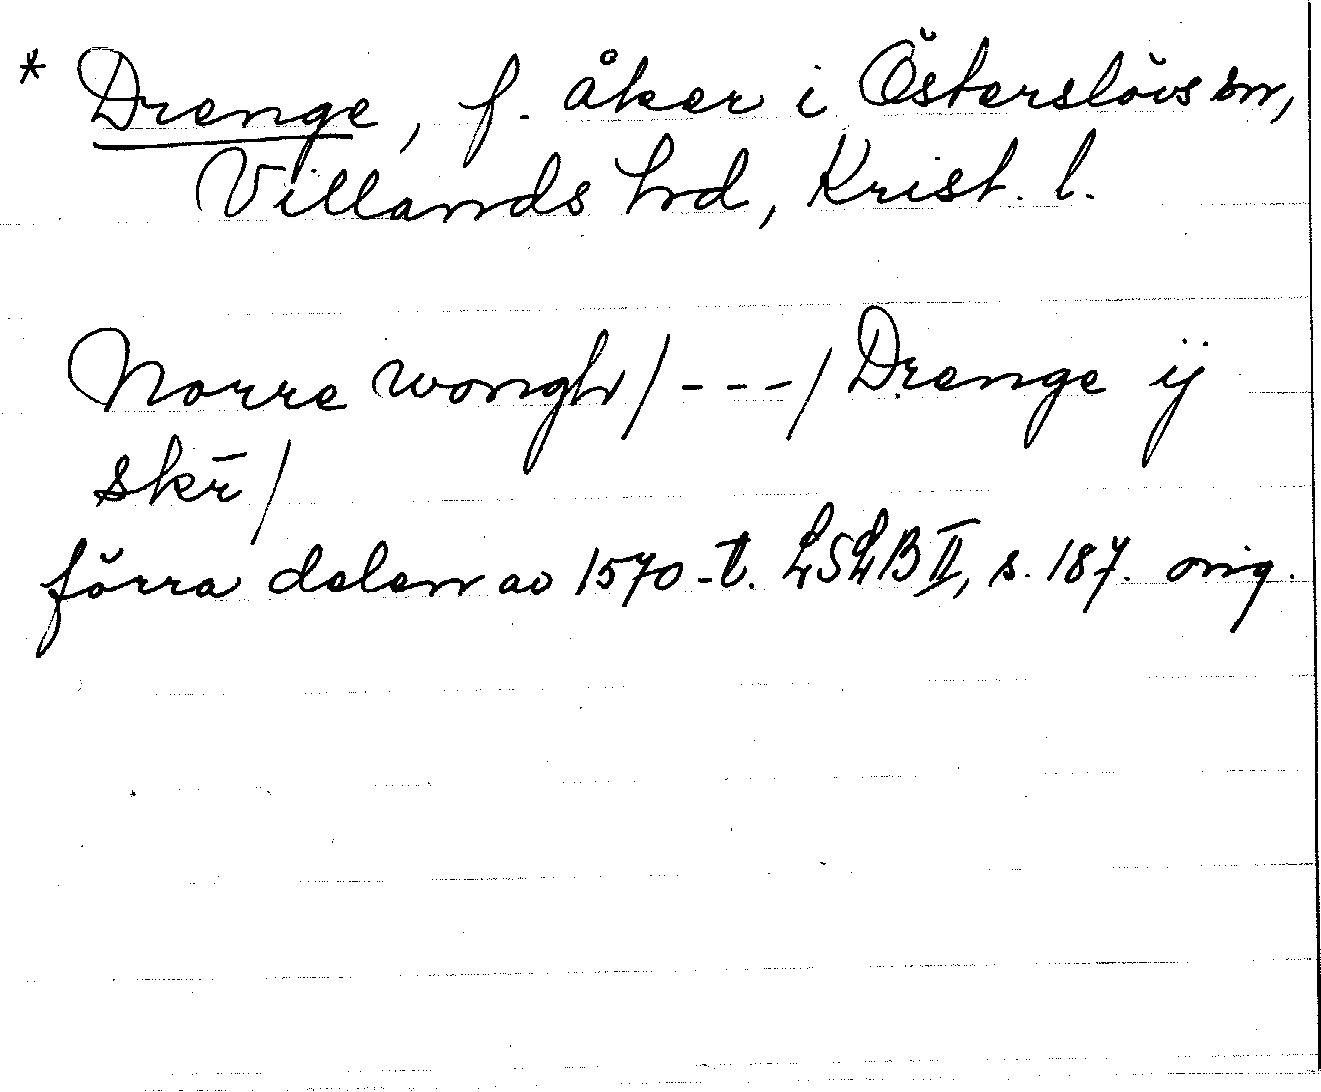 * Drenge, f. åker i Österslövs sn,
Villands hd, Krist. l.
Norre wongh/ --- / Drenge ij
skr̄/
förra delen av 1570-t. LSLB II, s. 187. orig.